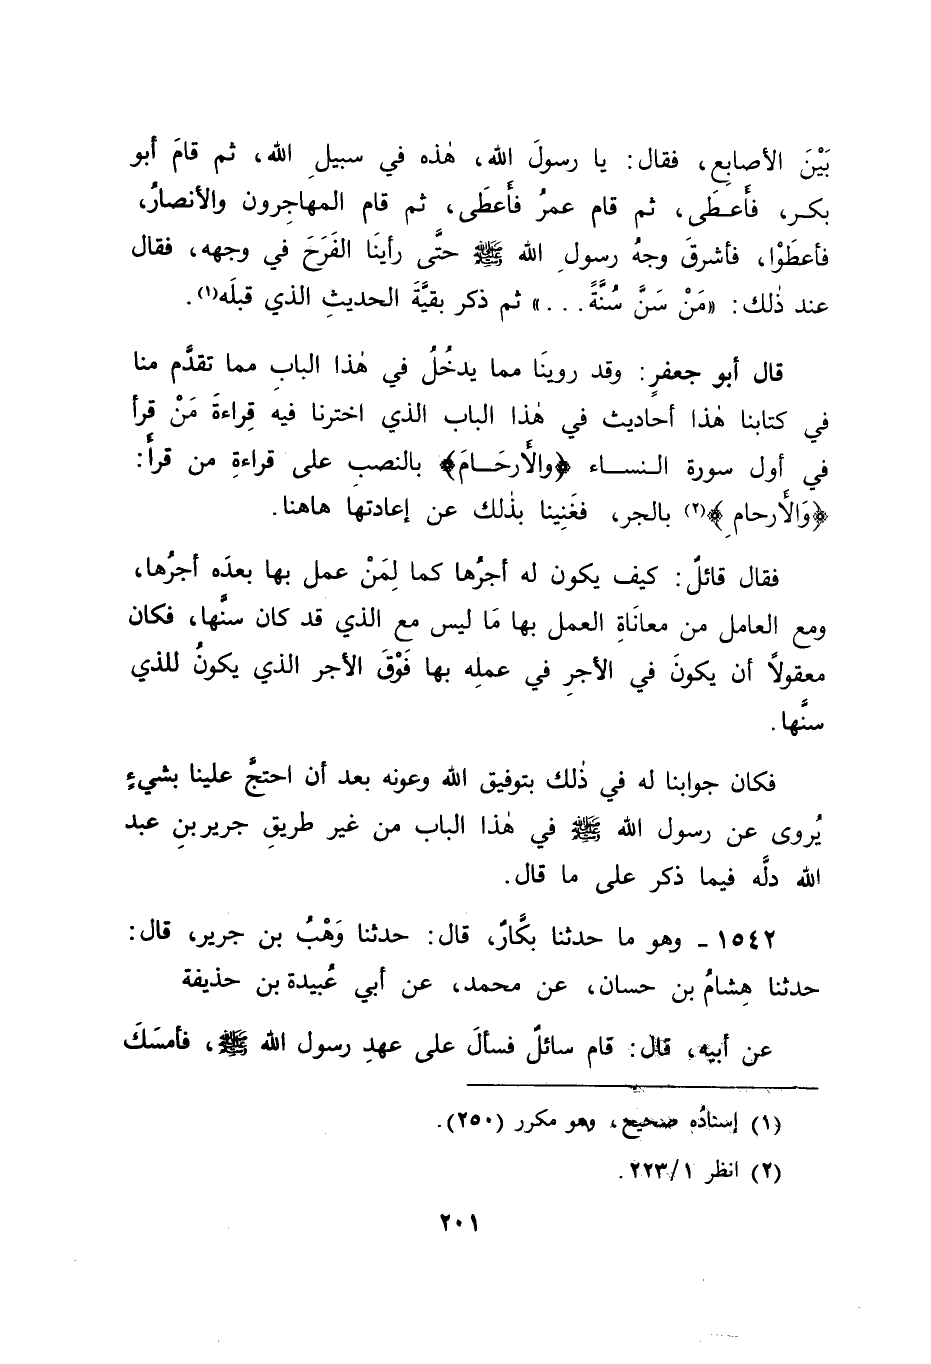 بَيْنَ الأصابِع، فقال: يا رسولَ الله، هٰذه في سبيلِ الله، ثم قامَ أبو
بكـر، فَأَعـطَى، ثم قام عمرُ فأَعطَى، ثم قام المهاجرون والأنصارُ،
فأعطَوْا، فأشرقَ وجهُ رسولِ الله ﷺ حتَّى رأينَا الفَرَحَ في وجهه، فقال
عند ذٰلك: «مَنْ سَنَّ سُنَّةً...» ثم ذكر بقيَّةَ الحديثِ الذي قبلَه(١).
قال أبو جعفرٍ: وقد روينَا مما يدخُلُ في هٰذا البابِ مما تقدَّم منا
في كتابنا هٰذا أحاديث في هٰذا الباب الذي اخترنا فيه قِراءةَ مَنْ قرأ
في أول سورة النـسـاء ﴿والأَرحَـامَ﴾ بالنصبِ على قراءةِ من قرأَ:
﴿وَالأَرحامِ﴾(٢) بالجر، فغَنِينا بذٰلك عن إعادتها هاهنا.
فقال قائلٌ: كيف يكون له أجرُها كما لِمَنْ عمل بها بعدَه أجرُها،
ومع العامل من معانَاةِ العمل بها مَا ليس مع الذي قد كان سنَّها، فكان
معقولاً أن يكونَ في الأجرِ في عملِه بها فَوْقَ الأجر الذي يكونُ للذي
سنَّها.
فكان جوابنا له في ذٰلك بتوفيق الله وعونه بعد أن احتجَّ علينا بشيءٍ
يُروى عن رسول الله ﷺ في هٰذا الباب من غير طريقِ جريرِ بنِ عبد
الله دلَّه فيما ذكر على ما قال.
١٥٤٢ - وهو ما حدثنا بكَّارٌ، قال: حدثنا وَهْبُ بن جرير، قال:
حدثنا هِشامُ بن حسان، عن محمد، عن أبي عُبيدة بن حذيفة
عن أبيه، قال: قام سائلٌ فسألَ على عهدِ رسول الله ﷺ، فأمسَكَ
(١) إسنادُه صحيح، وهو مكرر (٢٥٠).
(٢) انظر ٢٢٣/١.
٢٠١